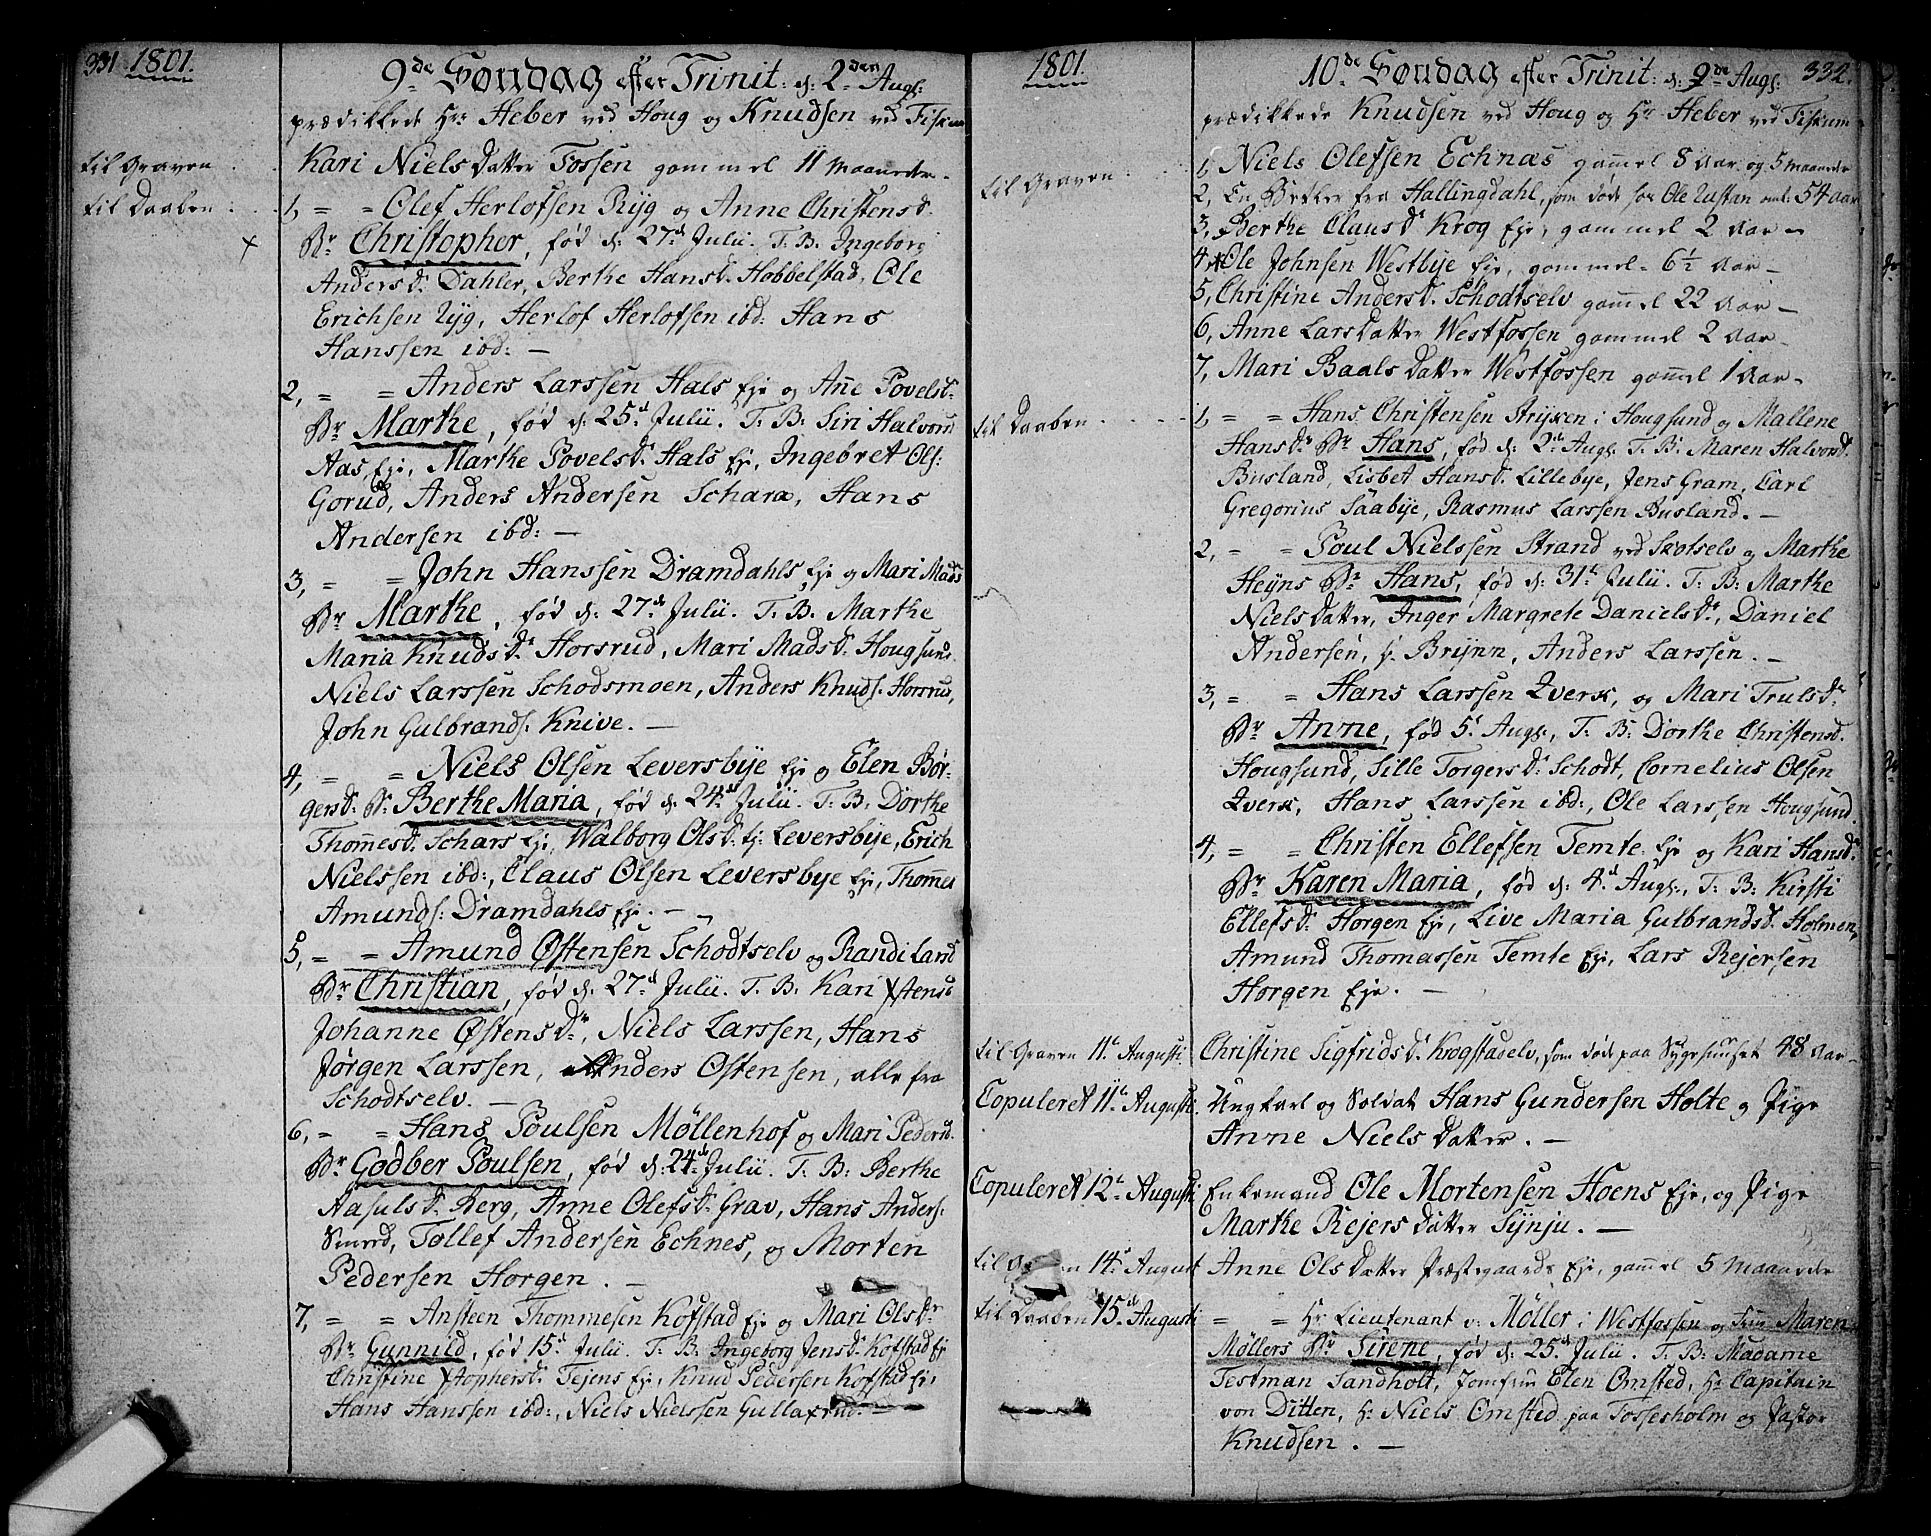 331 1801.
9de Søndag efter Trinit: d: 2den Augs:
prædikkede Hr: Heber ved Houg og Knudsen ved Fiskum
til Graven Kari Nielsdatter Fossen gammel 11 Maaneder.
til Daaben 1, = = Olef Herlofsen Ryg og Anne Christensd:
Br Christopher, fød d: 27d Julii. T. B: Ingeborg
Andersd: Dahler, Berthe Hansd: Hobbelstad, Ole
Erichsen Ryg, Herlof Herlofsen ibd: Hans
Hanssen ibd: —
2, = = Anders Larssen Hals Eje og Anne Povelsd:
Br Marthe, fød d: 25d Julii. T. B: Siri Halvorsd
Aas Eje, Marthe Povelsd: Hals Eje, Ingebret Ols:
Gorud, Anders Andersen Schara, Hans
Andersen ibd: —
3, = = John Hanssen Dramdahls Eje og Mari Mads
Br Marthe, fød d: 27d Julii. T. B. Marthe
Maria Knudsdr Horsrud, Mari Madsd: Hougsund
Niels Larssen Schodsmoen, Anders Knuds: Horsrud,
John Gulbrands: Knive. —
4, = = Niels Olsen Leversbye Eje og Elen Bør-
gersd: Br Berthe Maria, fød d: 24d Julii. T. B. Dorthe
Thommesd: Schars Eje, Walborg Olsd: Leversbye, Erich
Nielssen ibd:, Claus Olsen Leversbye Eje, Thommes
Amunds: Dramdahls Eje. —
5, = = Amund Østensen Schodtselv og Randi Lars
Br Christian, fød d: 27d Julii. T. B: Kari Xstens
Johanne Østensdr, Niels Larssen, Hans
Jørgen Larssen, Anders Østensen, alle fra
Schodtselv. —
6, = = Hans Poulsen Møllenhof og Mari Pedersd.
Br Godber Poulsen, fød d: 24d Julii. T. B: Berthe
Aasulsd: Berg, Anne Olefsd: Grav, Hans Anders:
Smed, Tollef Andersen Echnes, og Morten
Pedersen Horgen. —
7, = = Ansteen Thommesen Kofstad Eje og Mari Olsdr
Br Gunnild, fød 15d Julii. T. B. Ingeborg Jensd: Kofstad Ej
Christine Xstophersd: Tejens Eje, Knud Pedersen Kofstad Ej,
Hans Hanssen ibd:, Niels Nielssen Gullaxrud. —
1801. 332.
10de Søndag efter Trinit: d: 9de Augs:
prædikkede Knudsen ved Houg og Hr Heber ved Fiskum
til Graven 1, Niels Olefsen Echnæs gammel 8 Aar og 5 Maaneder
2, En Betler fra Hallingdahl, som døde hos Ole Rustan ant: 54 Aar
3, Berthe Clausdr Krog Eje, gammel 2 Aar —
4, Ole Johnsen Westbye Eje, gammel 6½ Aar —
5, Christine Andersd: Schodtselv gammel 22 Aar —
6, Anne Larsdatter Westfossen gammel 2 Aar —
7, Mari Baalsdatter Westfossen gammel 1 Aar —
til Daaben 1, = = Hans Christensen Stryken i Hougsund og Mallene
Hansdr Br Hans, fød d: 2d Augs. T. B: Maren Halvorsd:
Busland, Lisbet Hansd: Lillebye, Jens Gram, Carl
Gregorius Saabye, Rasmus Larssen Busland. —
2, = = Poul Nielssen Strand ved Skotselv og Marthe
Heyns Br Hans, fød d: 31d Julii. T. B: Marthe
Nielsdatter, Inger Margrete Danielsdr, Daniel
Andersen, H: Brynn, Anders Larssen. —
3, = = Hans Larssen Zverk, og Mari Trulsdr
Br Anne, fød 5d Augs:, T. B: Dorthe Christensd:
Hougsund, Sille Torgersd: Schodt, Cornelius Olsen
Zverk, Hans Larssen ibd:, Ole Larssen Hougsund
4, = = Christen Ellefsen Temte Eje og Kari Hansd:
Br Karen Maria, fød d: 4d Augs:, T. B: Kirsti
Ellefsd: Horgen Eje, Live Maria Gulbrandsd: Holmen,
Amund Thomassen Temte Eje, Lars Rejersen
Horgen Eje. —
til Graven 11te Augusti Christine Sigfridsd: Krogstadelv, som døde paa Sygehuuset 48 Aar —
Copuleret 11te Augusti. Ungkarl og Soldat Hans Gundersen Holte og Pige
Anne Nielsdatter. —
Copuleret 12te Augusti Enkemand Ole Mortensen Hoens Eje, og Pige
Marthe Rejersdatter Synju. —
til Graven 14d August Anne Olsdatter Præstegaards Eje, gammel 5 Maaneder
til Daaben 15d Augusti = = Hr Lieutenant v: Møller i Westfossen og Frue Maren
Møllers Br Sirene, fød d: 25d Julii. T. B: Madame
Testman Sandholt, Jomfrue Elen Omsted, Hr Capitain
von Ditten, Hr Niels Omsted paa Fossesholm og Pastor
Knudsen. —